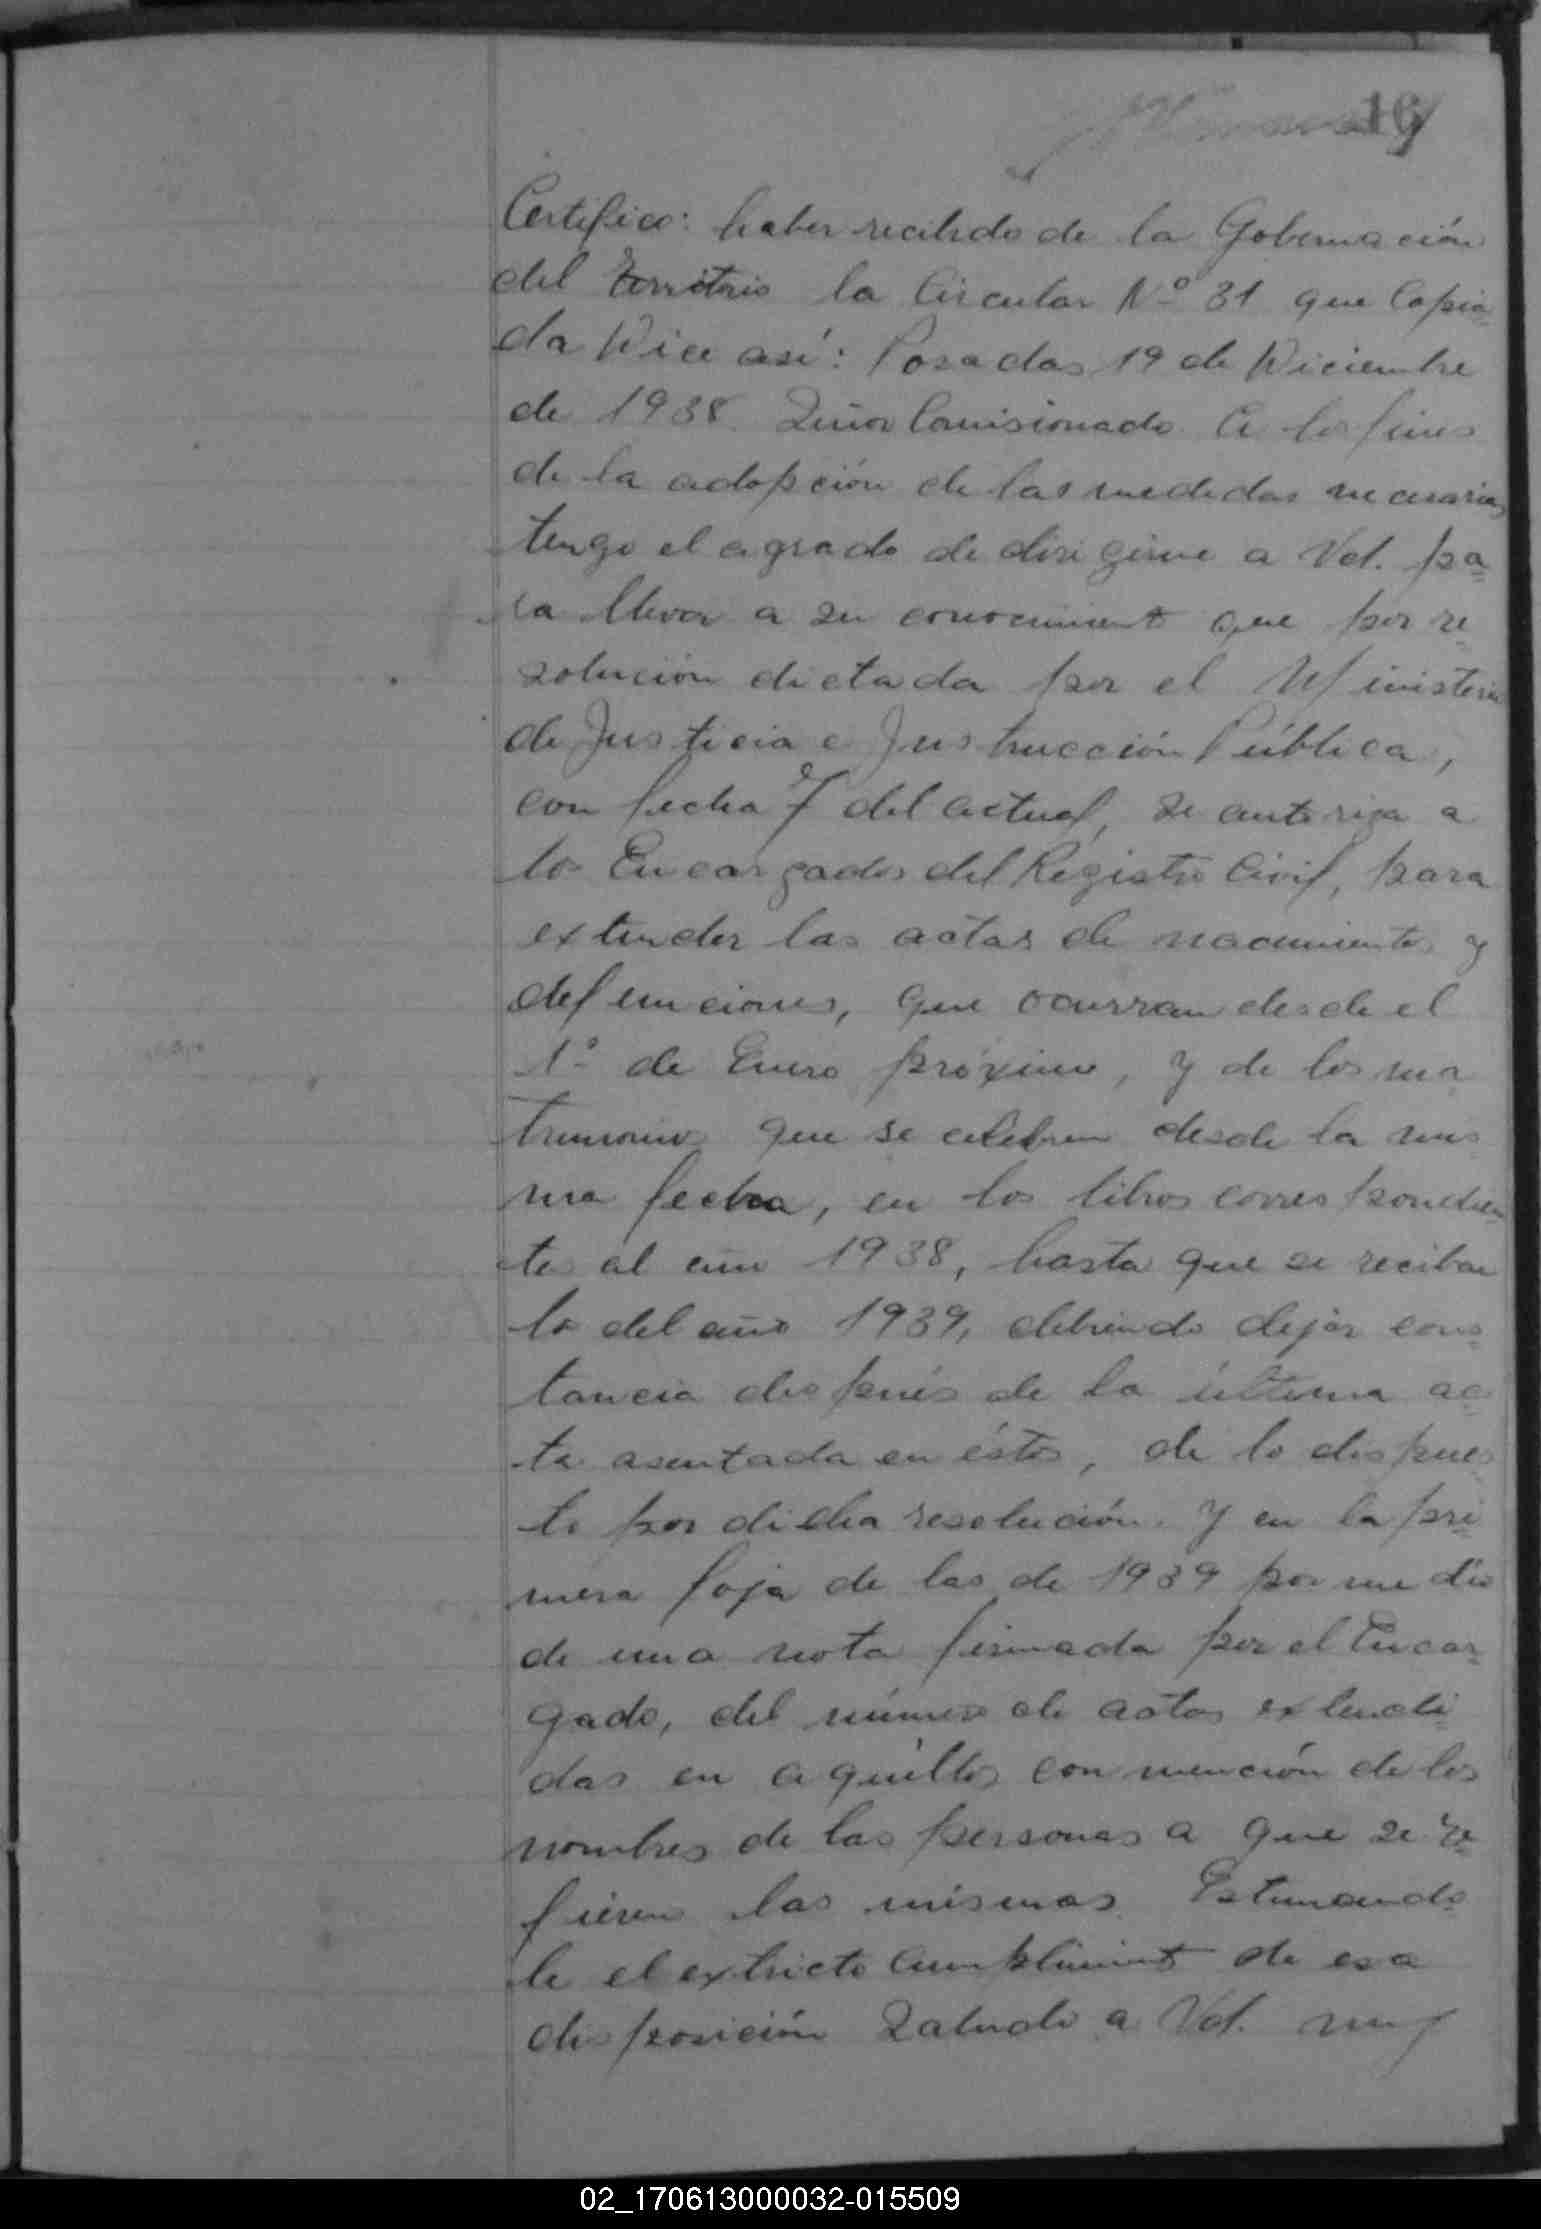 16
Certifico: haber recibido de la Gobernación
del Territorio la Circular Nº 31 que Copia-
da Dice así: Posadas 19 de Diciembre
de 1938. Señor Comisionado. A los fines
de la adopción de las medidas necesarias
tengo el agrado de dirigirme a Vd. pa-
ra llevar a su conocimiento que por re-
solución dictada por el Ministerio
de Justicia e Instrucción Pública,
con fecha 7 del actual, se autoriza a
los Encargados del Registro Civil, para
extender las actas de nacimientos y
defunciones, que ocurran desde el
1º de Enero próximo, y de los ma-
trimonios que se celebren desde la mis-
ma fecha, en los libros correspondien-
tes al año 1938, hasta que se reciban
los del año 1939, debiendo dejar cons-
tancia después de la última ac-
ta asentada en éstos, de lo dispues-
to por dicha resolución. Y en la pri-
mera foja de las de 1939 por medio
de una nota firmada por el Encar-
gado, del número de actas extendi-
das en aquéllos con mención de los
nombres de las personas a que se re-
fieren las mismas. Estimando-
le el extricto Cumplimiento de esa
disposición Saludo a Vd. muy
02_170613000032-015509